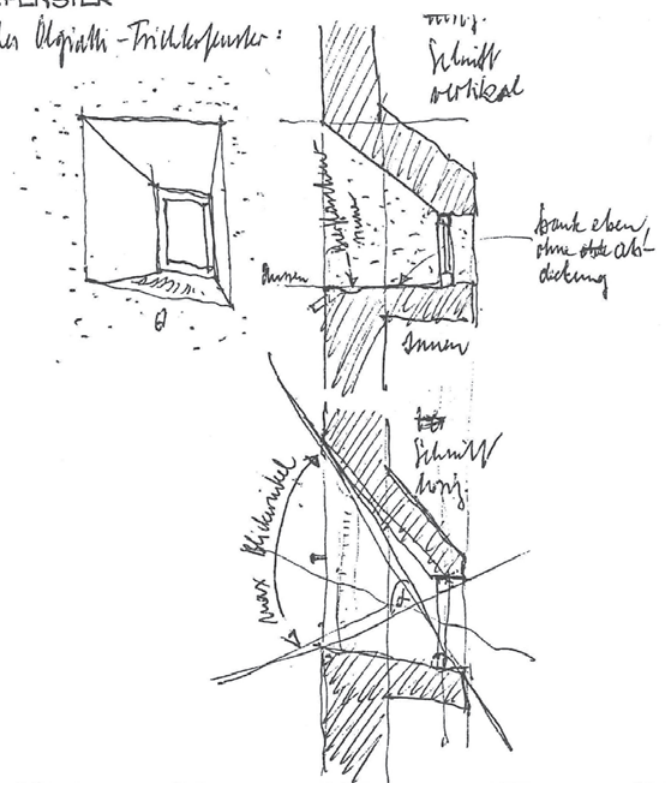 Olgiatti-Trichterfenster:
Schnitt
vertikal
Bank eben
ohne Ab-
dichtung
Aussen
Innen
Schnitt
horiz.
max Blickwinkel